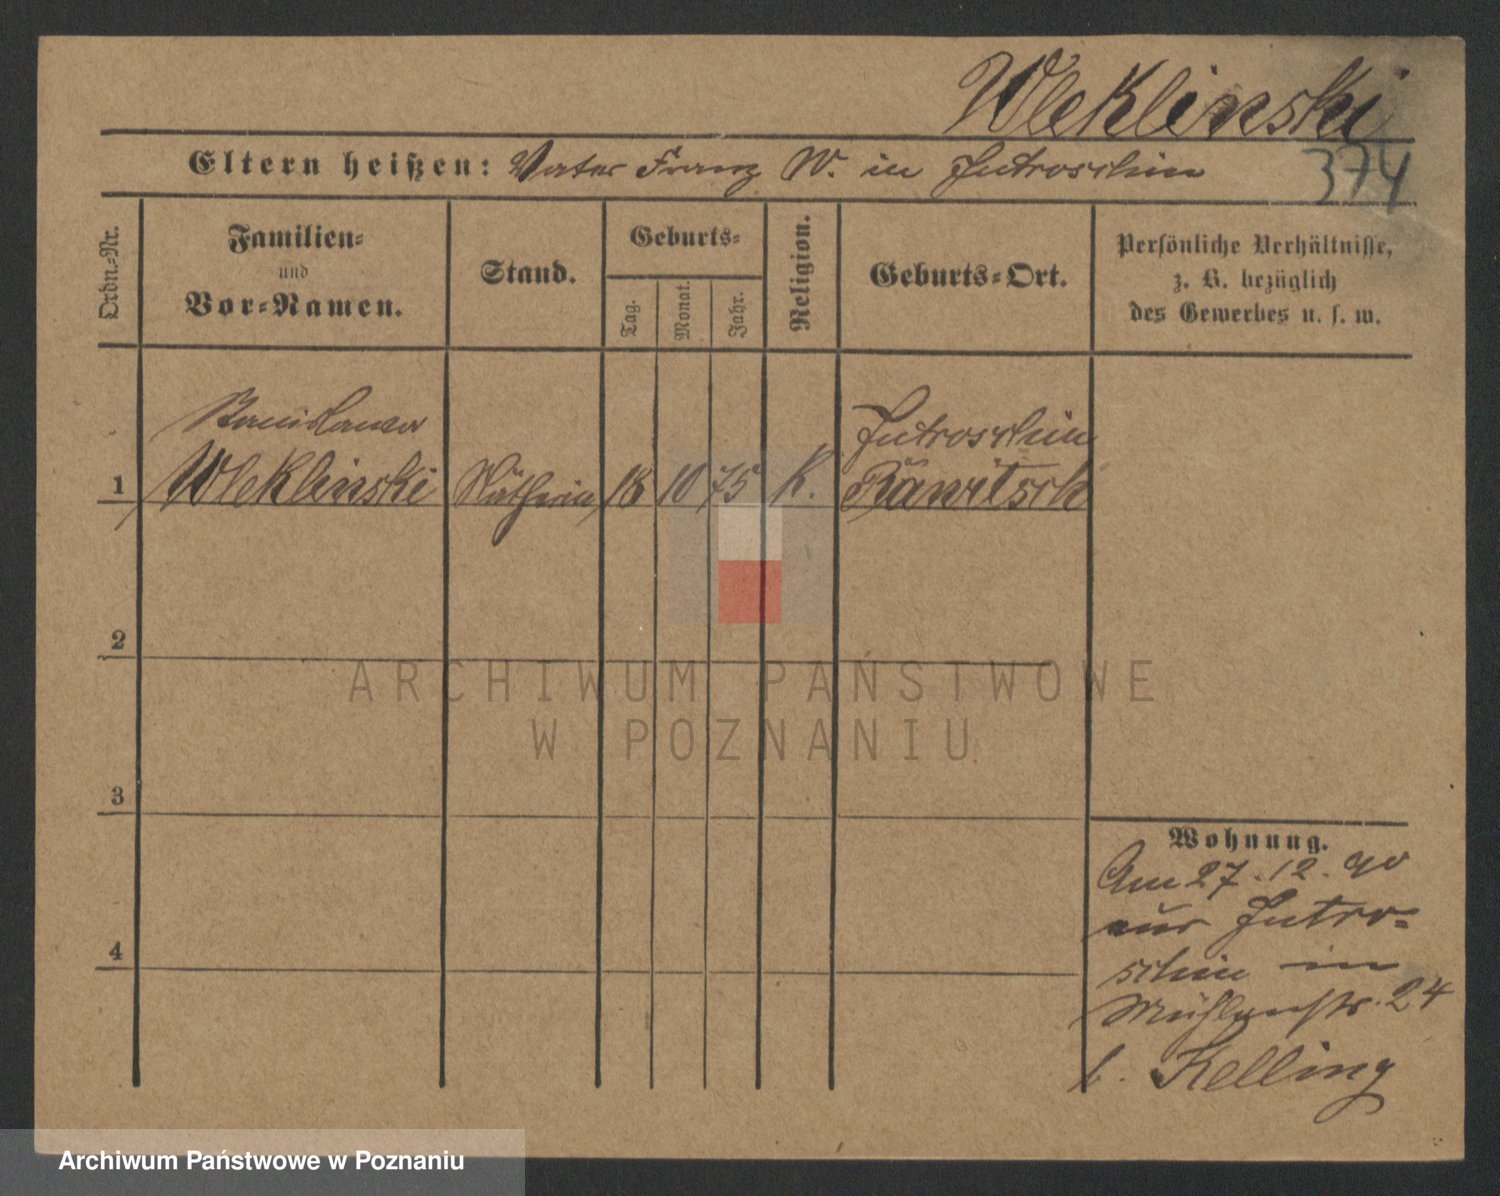 Wleklinski
Eltern heißen: Vater Franz W. in Jutroschin
374
Ordn.-Nr.
Familien-
und
Vor-Namen.
Stand.
Geburts-
Tag.
Monat.
Jahr.
Religion.
Geburts-Ort.
Persönliche Verhältnisse,
z. B. bezüglich
des Gewerbes u. s. w.
Stanislawa Jutroschin
1 Wleklinski Nätherin 18 10 75 K. Rawitsch
2
ARCHIWUM PAŃSTWOWE
W POZNANIU
3
Wohnung.
Am 27.12.90
aus Jutro-
4
schin in
Mühlenstr. 24
b. Kelling
Archiwum Państwowe w Poznaniu